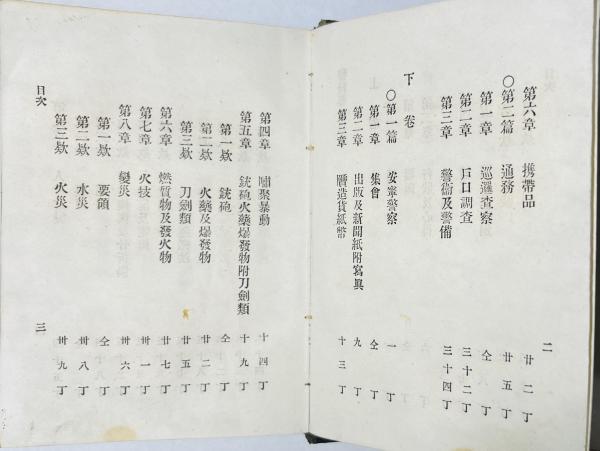 第六章 携帶品 廿二丁
○第二篇 通務 廿五丁
第一章 巡邏査察 仝丁
第二章 戸口調査 三十二丁
第三章 警衞及警備 三十四丁
下卷
○第一篇 安寧警察 一丁
第一章 集會 仝丁
第二章 出版及新聞紙附寫眞 九丁
第三章 贋造貨紙幣 十三丁
二
第四章 嘯聚暴動 十四丁
第五章 銃砲火藥爆發物附刀劍類 十九丁
第一欵 銃砲 仝丁
第二欵 火藥及爆發物 廿二丁
第三欵 刀劍類 廿五丁
第六章 燃質物及發火物 廿七丁
第七章 火技 卅一丁
第八章 變災 卅六丁
第一欵 要領 仝丁
第二欵 水災 卅八丁
第三欵 火災 卅九丁
目次
三